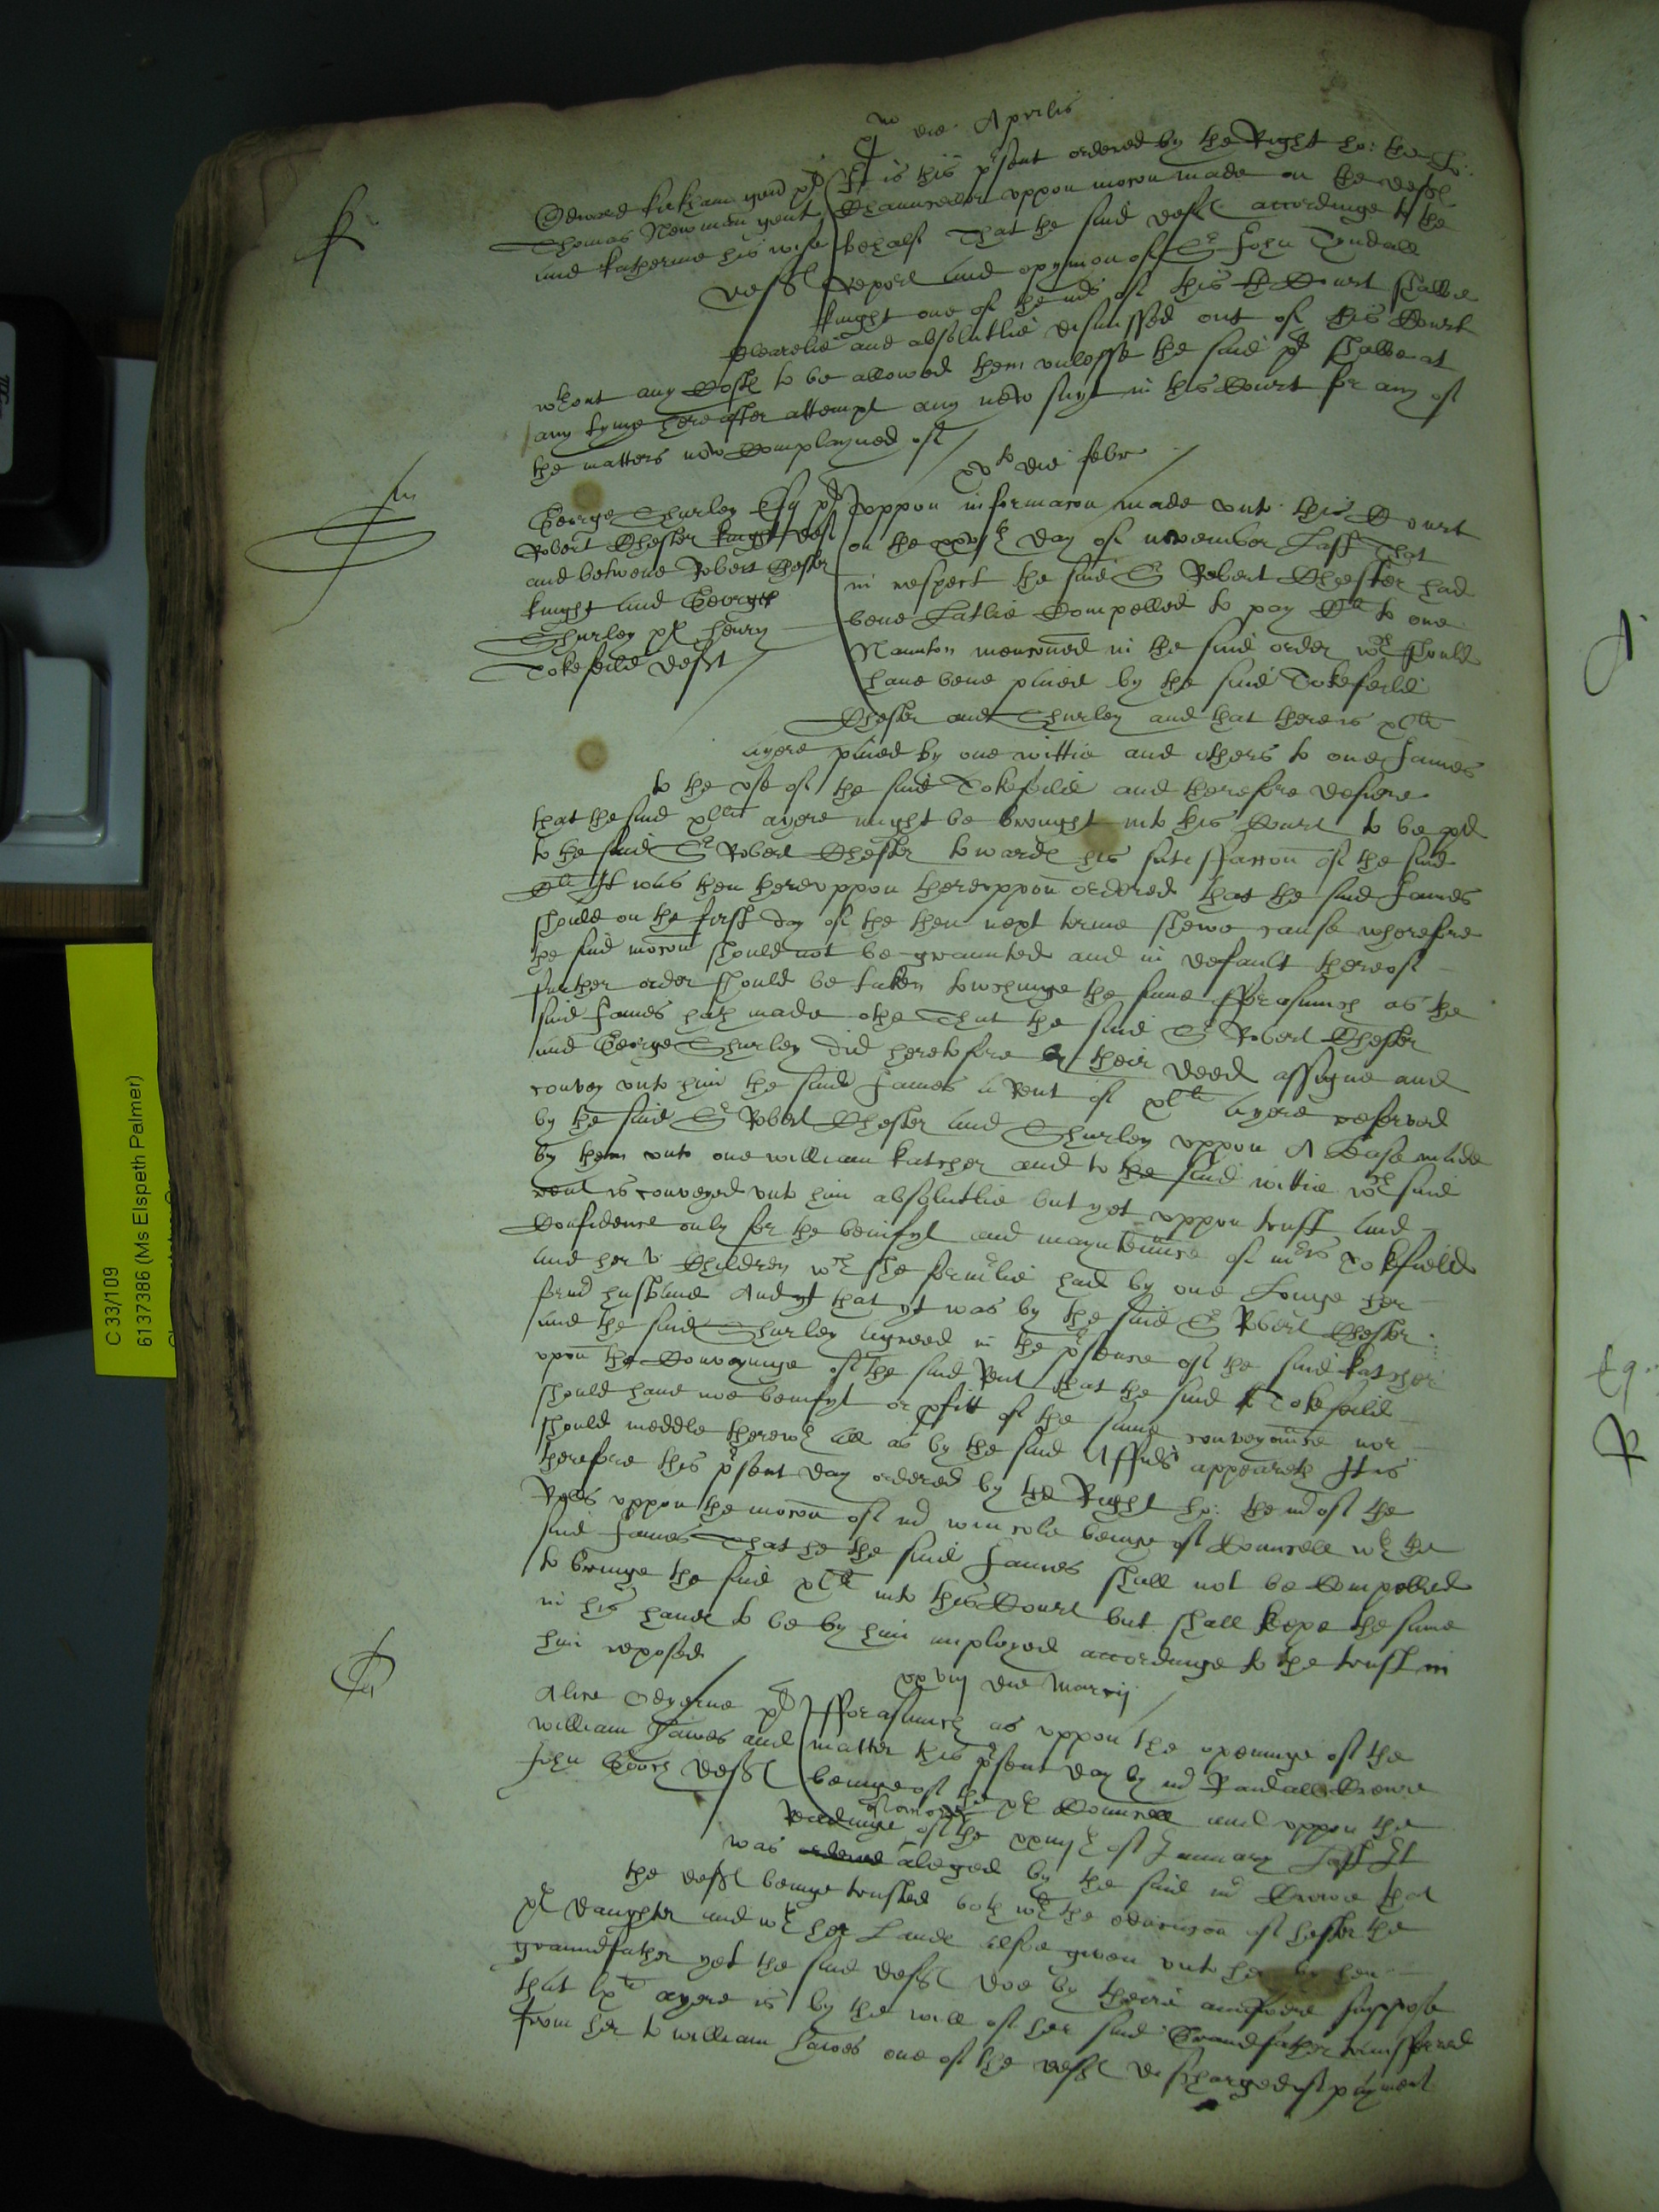 die Aprilis
Edward kirkham gent pl It is this p'sent ordered by the Right ho: the Lo:
Thomas Newman gent Chauncellor uppon mocon made on the deftes
and katherine his wife behalf That the said deftes accordinge to the
deftes Report and opynion of Sr John Tyndall
knight one of the mrs of this Court shalbe
Clearelie and absolutlie dismissed out of this Court
wthout any Costes to be allowed them unlesse the said pl shalbe at
any tyme hereafter attempt any new suyt in this Court for any of
the matters now Complayned of
xvto die febr
George Shurley Esq pl Uppon informacon made unto this Court
Robert Chester knight deft on the day of november Last That
and betwene Robert Chester in respect the said Sr Robert Chester had
knight and George bene Latlie Compelled to pay Cli to one
Shurley pl henry Naunton mencioned in the said order wch should
Tokefeild deft have bene paied by the said Tokefeild
Chester and Shurley and that there is xlli
ayere paied by one wittie and others to one James
to the use of the said Tokefeild and therefore desiere
that the said xlli ayere might be brought into this Court to be pd
to the said Sr Robert Chester towardes his satisfaccon of the said
Cli It was then hereuppon thereuppon ordered that the said James
should on the first day of the then next terme shewe cause wherefore
the said mocon should not be graunted and in default thereof
further order should be taken towchinge the same fforasmuch as the
said James hath made othe That the said Sr Robert Chester
and George Shurley did heretofore by their deed assigne and
convey unto him the said James a Rent of xlli ayere reserved
by the said Sr Robert Chester and Shurley uppon A Lease made
by them unto one william katcher and to the said wittie wch said
rent is conveyed unto him absolutlie but yet uppon trust and
Confidence only for the benifyt and mayntennce of mrs Tokfield
and her v Children wch she formlie had by one Longe her
form husband And yt that yt was by the said Sr Robert Chester
and the said Shurley agreed in the p'sence of the said katcher
upon the Conveyinge of the said Rent that the said Tokefeild
should have noe benifyt or pfitt of the same conveyance nor
should meddle therewth all as by the said Affidt appeareth It is
therefore this p'sent day ordered by the Right ho: the mr of the
Rolls uppon the mocon of mr wincole beinge of Councell wth the
said James That he the said James shall not be Compelled
to bringe the said xlli into this Court but shall kepe the same
in his handes to be by him imployed accordinge to the trust in
him reposed
xxviij die Marcij
Alice pl fforasmuch as uppon the openinge of the
william hawes and matter this p'sent day by mr Randall Crewe
John Gooch deftes beinge of the pl Councell and uppon the
Readinge of the of January Last It
was aleged by the said mr Crewe that
the deftes beinge trusted both wth the educacon of hester the
pl daughter and wth her Landes alsoe given unto her by her
grandfather yet the said deftes doe by theire answere suppose
that lxli ayere is by the will of her said Grandfather transferred
from her to william hawes one of the deftes discharged of payment
C 33/109
6137386 (Ms Elspeth Palmer)